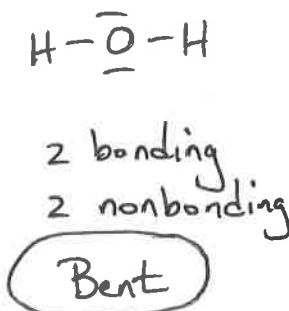 H-O-H
2 bonding
2 nonbonding
Bent